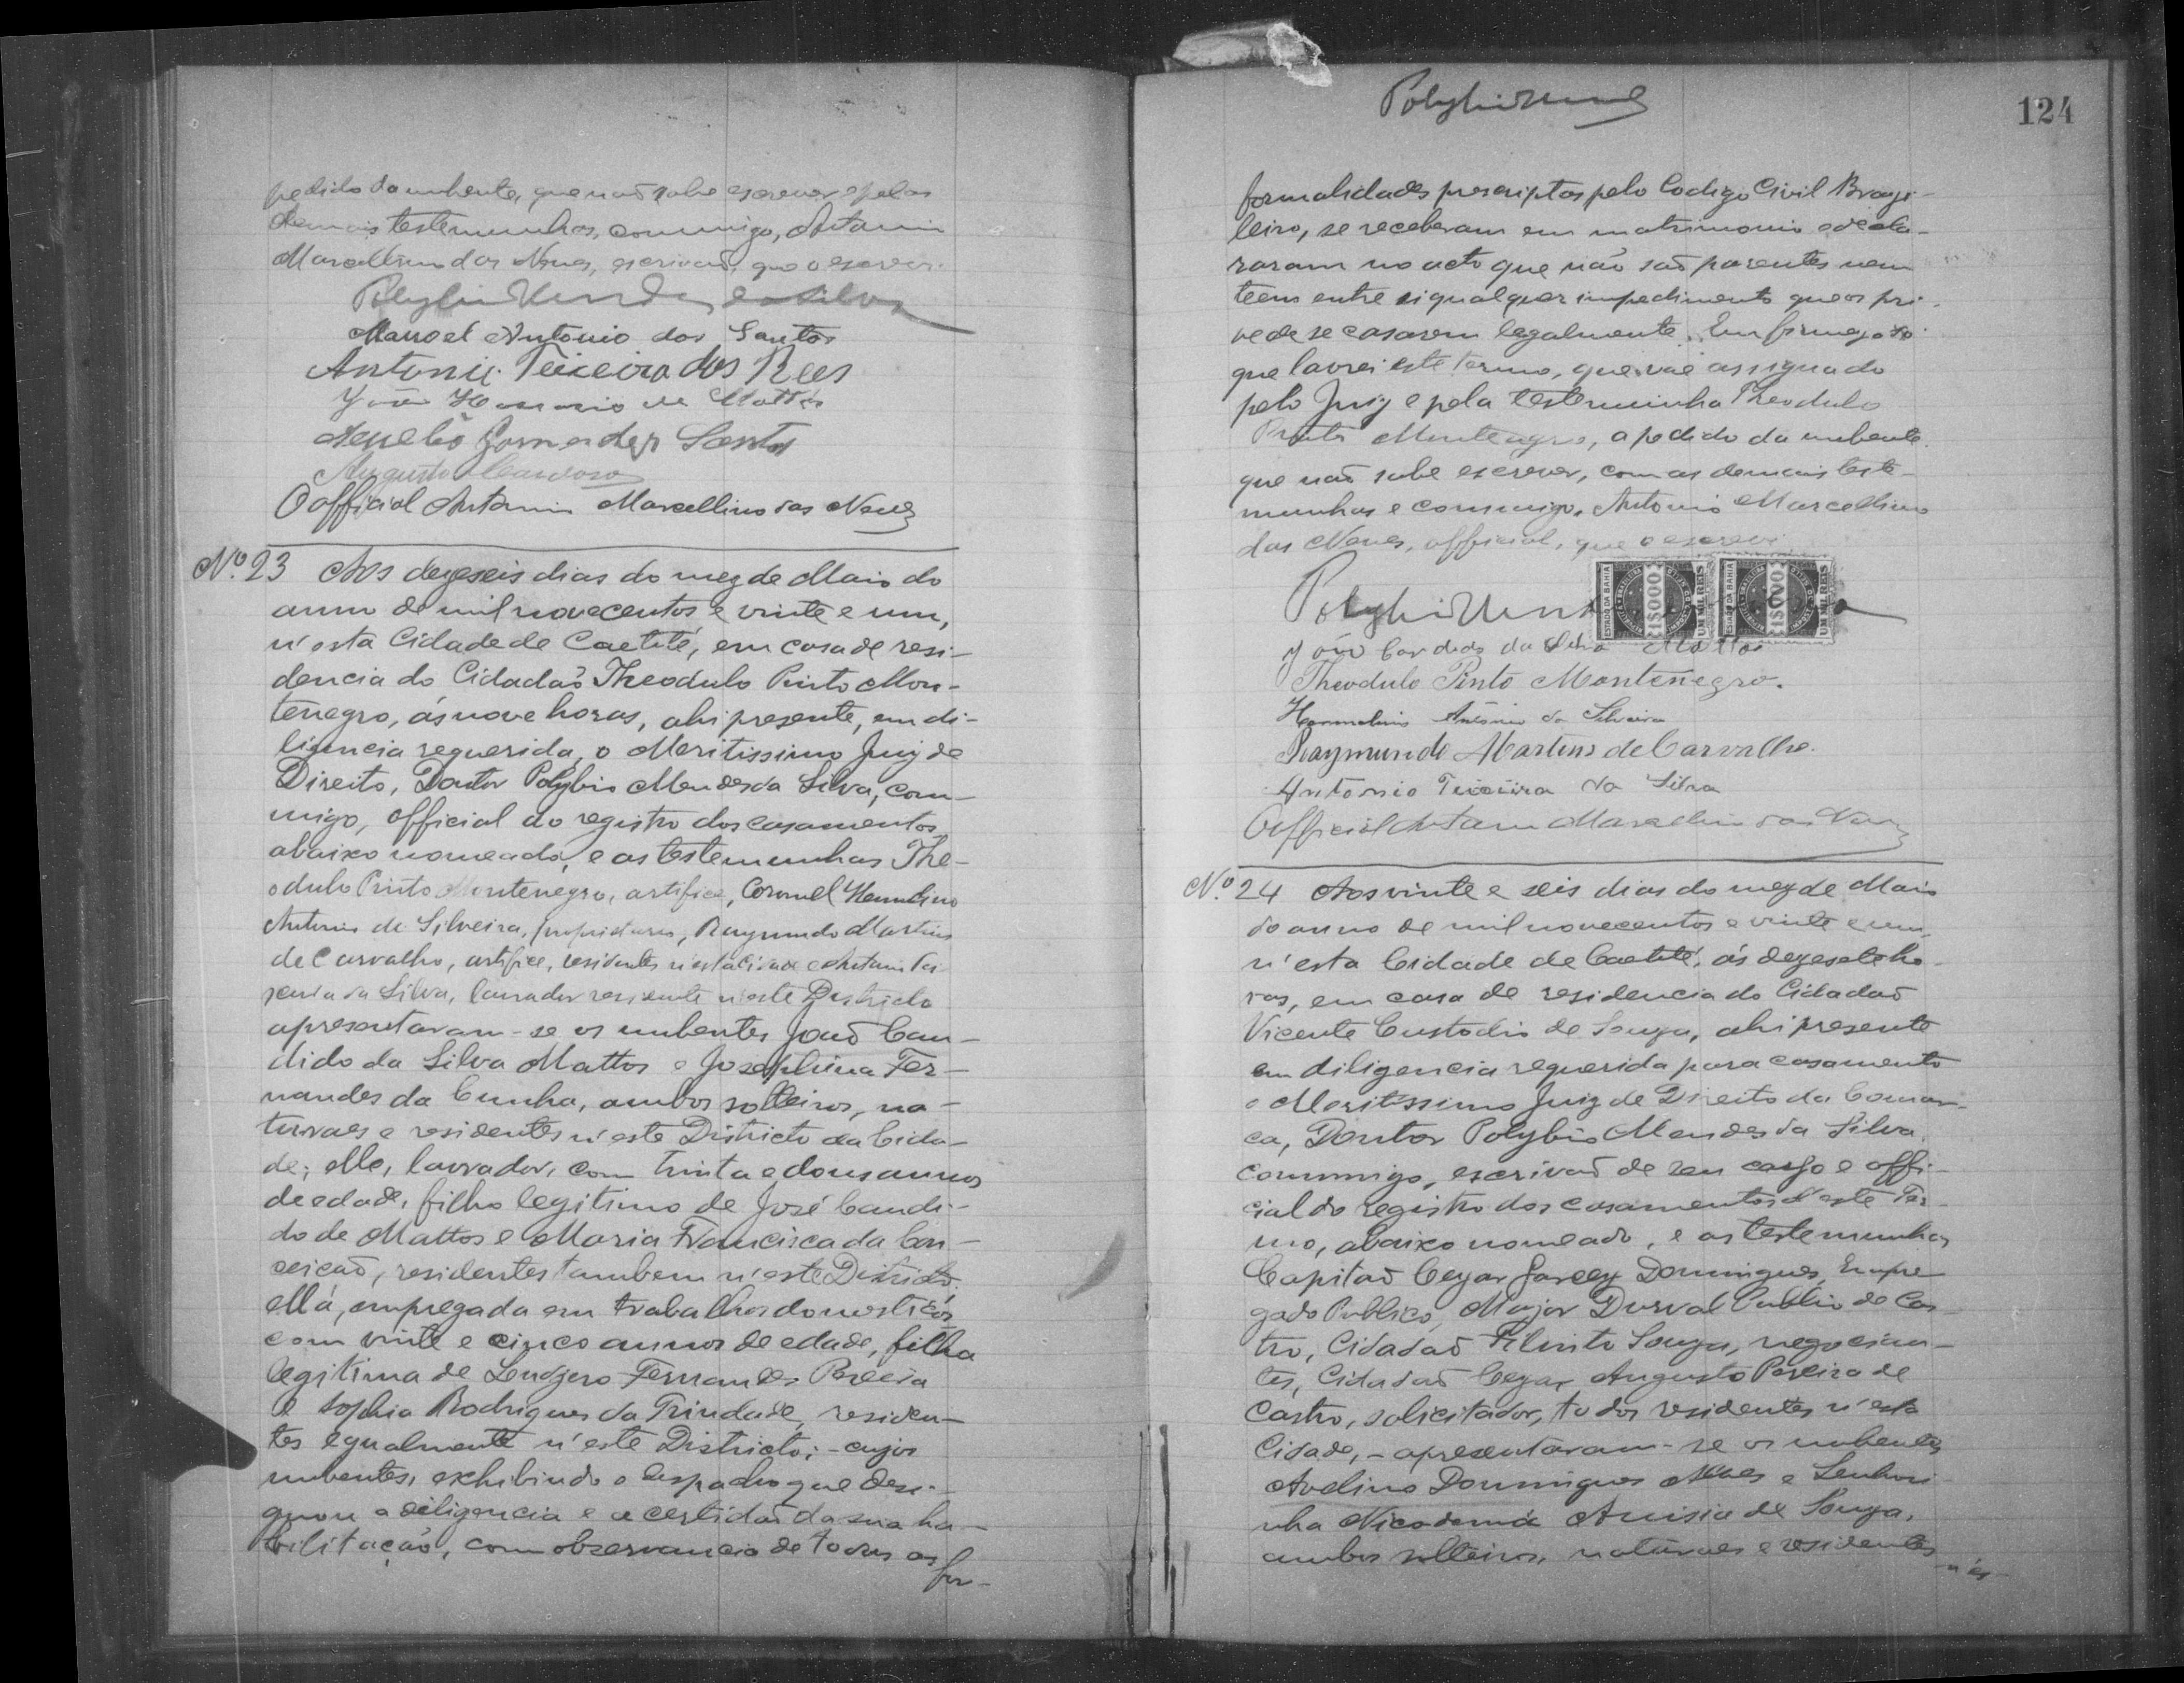 pedido da nubente, que não sabe escrever e pelas
demais testemunhas, commigo, Antonio
Marcellino das Neves, escrivão, que o escrevi.
Polybio Mendes da Silva
Manoel Antonio dos Santos
Antonio Teixeira dos Reis
João de Mattos
Gomes dos Santos
Augusto Cardoso
O official Antonio Marcellino das Neves
Nº 23 Aos dezeseis dias do mez de Maio do
anno de mil novecentos e vinte e um,
n'esta Cidade de Caetité, em casa de resi-
dencia do Cidadão Theodulo Pinto Mon-
tenegro, ás nove horas, ahi presente, em di-
ligencia requerida, o Meritissimo Juiz de
Direito, Doutor Polybio Mendes da Silva, com-
migo, official do registro dos casamentos
abaixo nomeado, e as testemunhas The-
odulo Pinto Montenegro, artifice, Coronel Hermelino
Antonio da Silveira, proprietario, Raymundo Martins
de Carvalho, artifice, residentes n'esta Cidade e Antonio Tei-
xeira da Silva, lavrador residente n'este Districto
apresentaram-se os nubentes João Can-
dido da Silva Mattos e Josephina Fer-
nandes da Cunha, ambos solteiros, na-
turaes e residentes n'este Districto da Cida-
de; elle, lavrador, com trinta e dous annos
de edade, filho legitimo de José Candi-
do de Mattos e Maria Francisca da Con-
ceição, residentes tambem n'este Districto,
ella, empregada em trabalhos domesticos
com vinte e cinco annos de edade, filha
legitima de Fernandes Pereira
e Sophia Rodrigues da Trindade, residen-
tes egualmente n'este Districto; - cujos
nubentes, exhibindo o despacho que desi-
gnou a diligencia e a certidão da sua ha-
bilitação, com observancia de todas as
for-
Polybio Mendes
124
formalidades prescriptas pelo Codigo Civil Brazi-
leiro, se receberam em matrimonio e decla-
raram no acto que não são parentes nem
teem entre si qualquer impedimento que os pri-
ve de se casarem legalmente. Em firmeza do
que lavrei este termo, que vae assignado
pelo Juiz e pela testemunha Theodulo
Pinto Montenegro, a pedido da nubente
que não sabe escrever, com as demais teste-
munhas e commigo, Antonio Marcellino
das Neves, official, que o escrevi
Polybio Mendes
ESTADO DA BAHIA 1$000 UM MIL REIS
ESTADO DA BAHIA 1$000 UM MIL REIS
João Candido da Silva Mattos
Theodulo Pinto Montenegro.
Hermelino Antonio da Silveira
Raymundo Martins de Carvalho.
Antonio Teixeira da Silva
O official Antonio Marcellino das Neves
Nº 24 Aos vinte e seis dias do mez de Maio
do anno de mil novecentos e vinte e um,
n'esta Cidade de Caetité, ás dezesete ho-
ras, em casa de residencia do Cidadão
Vicente Custodio de Souza, ahi presente
em diligencia requerida para casamento
o Meritissimo Juiz de Direito da Comar-
ca, Doutor Polybio Mendes da Silva,
commigo, escrivão de seu cargo e offi-
cial do registro dos casamentos d'este Ter-
mo, abaixo nomeado, e as testemunhas
Capitão Cezar Garcez Domingues, Empre-
gado Publico, Major Durval Publio de Cas-
tro, Cidadão Filinto Souza, negocian-
tes, Cidadão Cezar Augusto Pereira de
Castro, solicitador, todos residentes n'esta
Cidade, - apresentaram-se os nubentes
Avelino Domingues Alves e Senhori-
nha Nicodema Anisia de Souza,
ambos solteiros, naturaes e residentes
n'es-